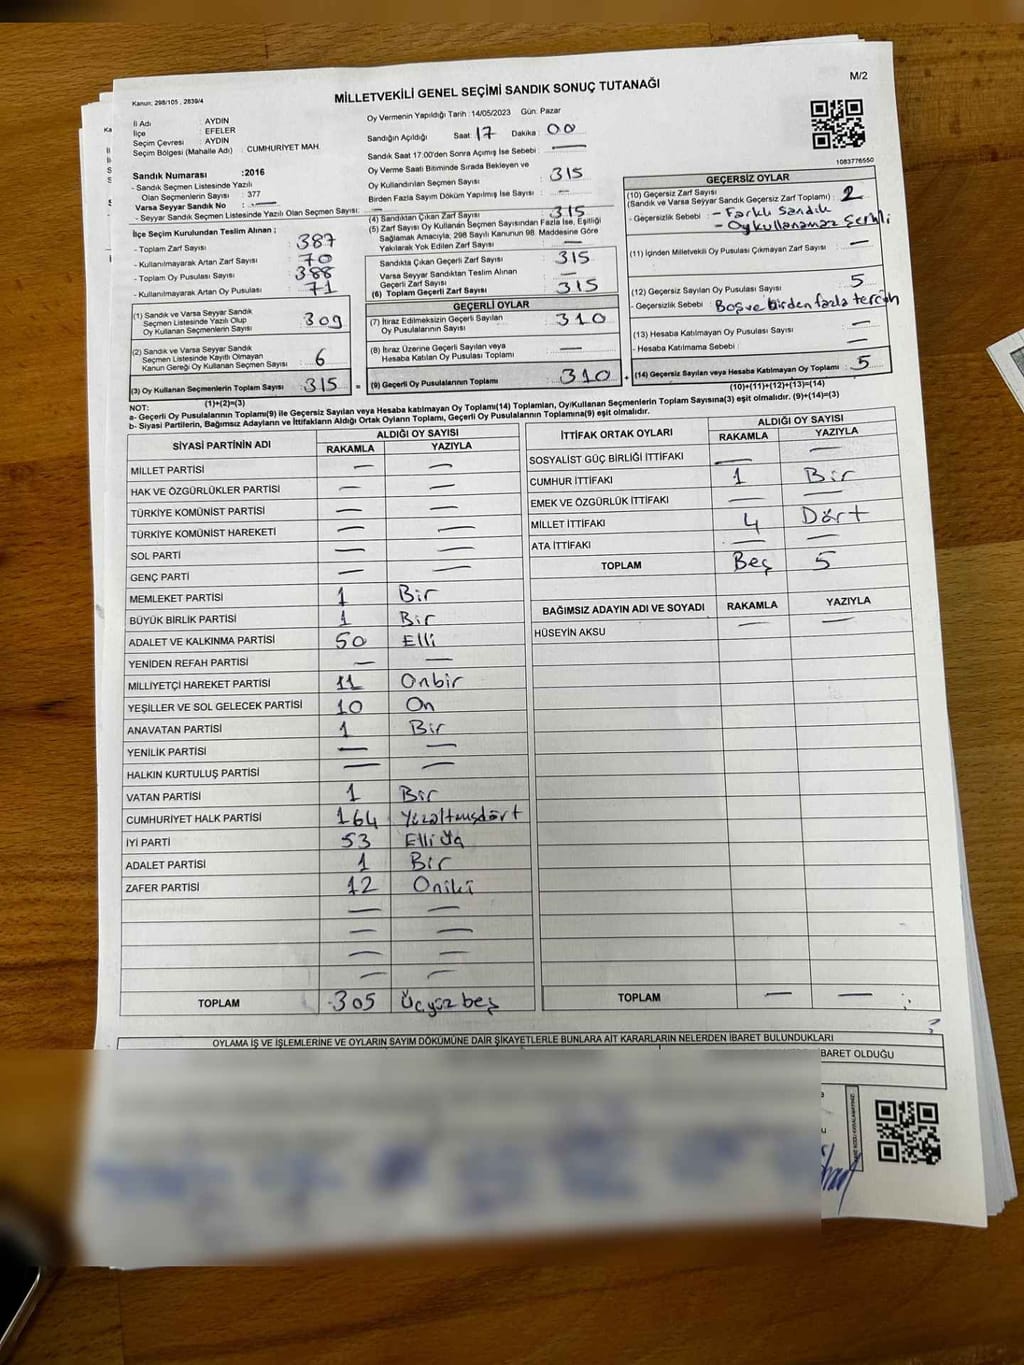 Kanun: 298/105 , 2839/4
MİLLETVEKİLİ GENEL SEÇİMİ SANDIK SONUÇ TUTANAĞI
M/2
İl Adı : AYDIN
İlçe : EFELER
Seçim Çevresi : AYDIN
Seçim Bölgesi (Mahalle Adı) : CUMHURİYET MAH.
Sandık Numarası :2016
- Sandık Seçmen Listesinde Yazılı
Olan Seçmenlerin Sayısı : 377
Varsa Seyyar Sandık No : —
- Seyyar Sandık Seçmen Listesinde Yazılı Olan Seçmen Sayısı: —
İlçe Seçim Kurulundan Teslim Alınan ;
- Toplam Zarf Sayısı : 387
- Kullanılmayarak Artan Zarf Sayısı : 70
- Toplam Oy Pusulası Sayısı : 388
- Kullanılmayarak Artan Oy Pusulası : 71
(1) Sandık ve Varsa Seyyar Sandık
Seçmen Listesinde Yazılı Olup
Oy Kullanan Seçmenlerin Sayısı : 309
(2) Sandık ve Varsa Seyyar Sandık
Seçmen Listesinde Kayıtlı Olmayan
Kanun Gereği Oy Kullanan Seçmen Sayısı : 6
(3) Oy Kullanan Seçmenlerin Toplam Sayısı : 315 =
(1)+(2)=(3)
Oy Vermenin Yapıldığı Tarih : 14/05/2023 Gün: Pazar
Sandığın Açıldığı Saat : 17 Dakika : 00
Sandık Saat 17:00'den Sonra Açılmış İse Sebebi : —
Oy Verme Saati Bitiminde Sırada Bekleyen ve
Oy Kullandırılan Seçmen Sayısı : 315
Birden Fazla Sayım Döküm Yapılmış İse Sayısı : —
(4) Sandıktan Çıkan Zarf Sayısı : 315
(5) Zarf Sayısı Oy Kullanan Seçmen Sayısından Fazla İse, Eşitliği
Sağlamak Amacıyla, 298 Sayılı Kanunun 98. Maddesine Göre
Yakılarak Yok Edilen Zarf Sayısı : —
Sandıkta Çıkan Geçerli Zarf Sayısı : 315
Varsa Seyyar Sandıktan Teslim Alınan
Geçerli Zarf Sayısı : —
(6) Toplam Geçerli Zarf Sayısı : 315
GEÇERLİ OYLAR
(7) İtiraz Edilmeksizin Geçerli Sayılan
Oy Pusulalarının Sayısı : 310
(8) İtiraz Üzerine Geçerli Sayılan veya
Hesaba Katılan Oy Pusulası Toplamı : —
(9) Geçerli Oy Pusulalarının Toplamı : 310 +
1083776550
GEÇERSİZ OYLAR
(10) Geçersiz Zarf Sayısı
(Sandık ve Varsa Seyyar Sandık Geçersiz Zarf Toplamı) : 2
- Geçersizlik Sebebi : - Farklı Sandık
- Oy kullanamaz Şerhli
(11) İçinden Milletvekili Oy Pusulası Çıkmayan Zarf Sayısı : —
(12) Geçersiz Sayılan Oy Pusulası Sayısı : 5
- Geçersizlik Sebebi : Boş ve birden fazla tercih
(13) Hesaba Katılmayan Oy Pusulası Sayısı : —
- Hesaba Katılmama Sebebi : —
(14) Geçersiz Sayılan veya Hesaba Katılmayan Oy Toplamı : 5
(10)+(11)+(12)+(13)=(14)
NOT:
a- Geçerli Oy Pusulalarının Toplamı(9) ile Geçersiz Sayılan veya Hesaba katılmayan Oy Toplamı(14) Toplamları, Oy Kullanan Seçmenlerin Toplam Sayısına(3) eşit olmalıdır. (9)+(14)=(3)
b- Siyasi Partilerin, Bağımsız Adayların ve İttifakların Aldığı Ortak Oyların Toplamı, Geçerli Oy Pusulalarının Toplamına(9) eşit olmalıdır.
SİYASİ PARTİNİN ADI ALDIĞI OY SAYISI
RAKAMLA YAZIYLA
MİLLET PARTİSİ — —
HAK VE ÖZGÜRLÜKLER PARTİSİ — —
TÜRKİYE KOMÜNİST PARTİSİ — —
TÜRKİYE KOMÜNİST HAREKETİ — —
SOL PARTİ — —
GENÇ PARTİ — —
MEMLEKET PARTİSİ 1 Bir
BÜYÜK BİRLİK PARTİSİ 1 Bir
ADALET VE KALKINMA PARTİSİ 50 Elli
YENİDEN REFAH PARTİSİ — —
MİLLİYETÇİ HAREKET PARTİSİ 11 Onbir
YEŞİLLER VE SOL GELECEK PARTİSİ 10 On
ANAVATAN PARTİSİ 1 Bir
YENİLİK PARTİSİ — —
HALKIN KURTULUŞ PARTİSİ — —
VATAN PARTİSİ 1 Bir
CUMHURİYET HALK PARTİSİ 164 Yüzaltmışdört
İYİ PARTİ 53 Elli üç
ADALET PARTİSİ 1 Bir
ZAFER PARTİSİ 12 Oniki
— —
— —
— —
— —
TOPLAM 305 Üçyüz beş
İTTİFAK ORTAK OYLARI ALDIĞI OY SAYISI
RAKAMLA YAZIYLA
SOSYALİST GÜÇ BİRLİĞİ İTTİFAKI — —
CUMHUR İTTİFAKI 1 Bir
EMEK VE ÖZGÜRLÜK İTTİFAKI — —
MİLLET İTTİFAKI 4 Dört
ATA İTTİFAKI — —
TOPLAM Beş 5
BAĞIMSIZ ADAYIN ADI VE SOYADI RAKAMLA YAZIYLA
HÜSEYİN AKSU — —
TOPLAM — —
OYLAMA İŞ VE İŞLEMLERİNE VE OYLARIN SAYIM DÖKÜMÜNE DAİR ŞİKAYETLERLE BUNLARA AİT KARARLARIN NELERDEN İBARET BULUNDUKLARI
BARET OLDUĞU